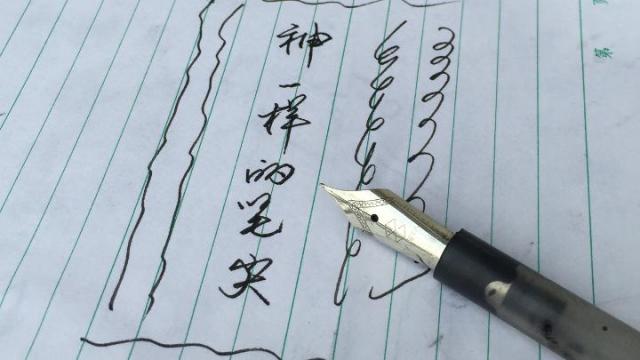 神一样的笔尖
第